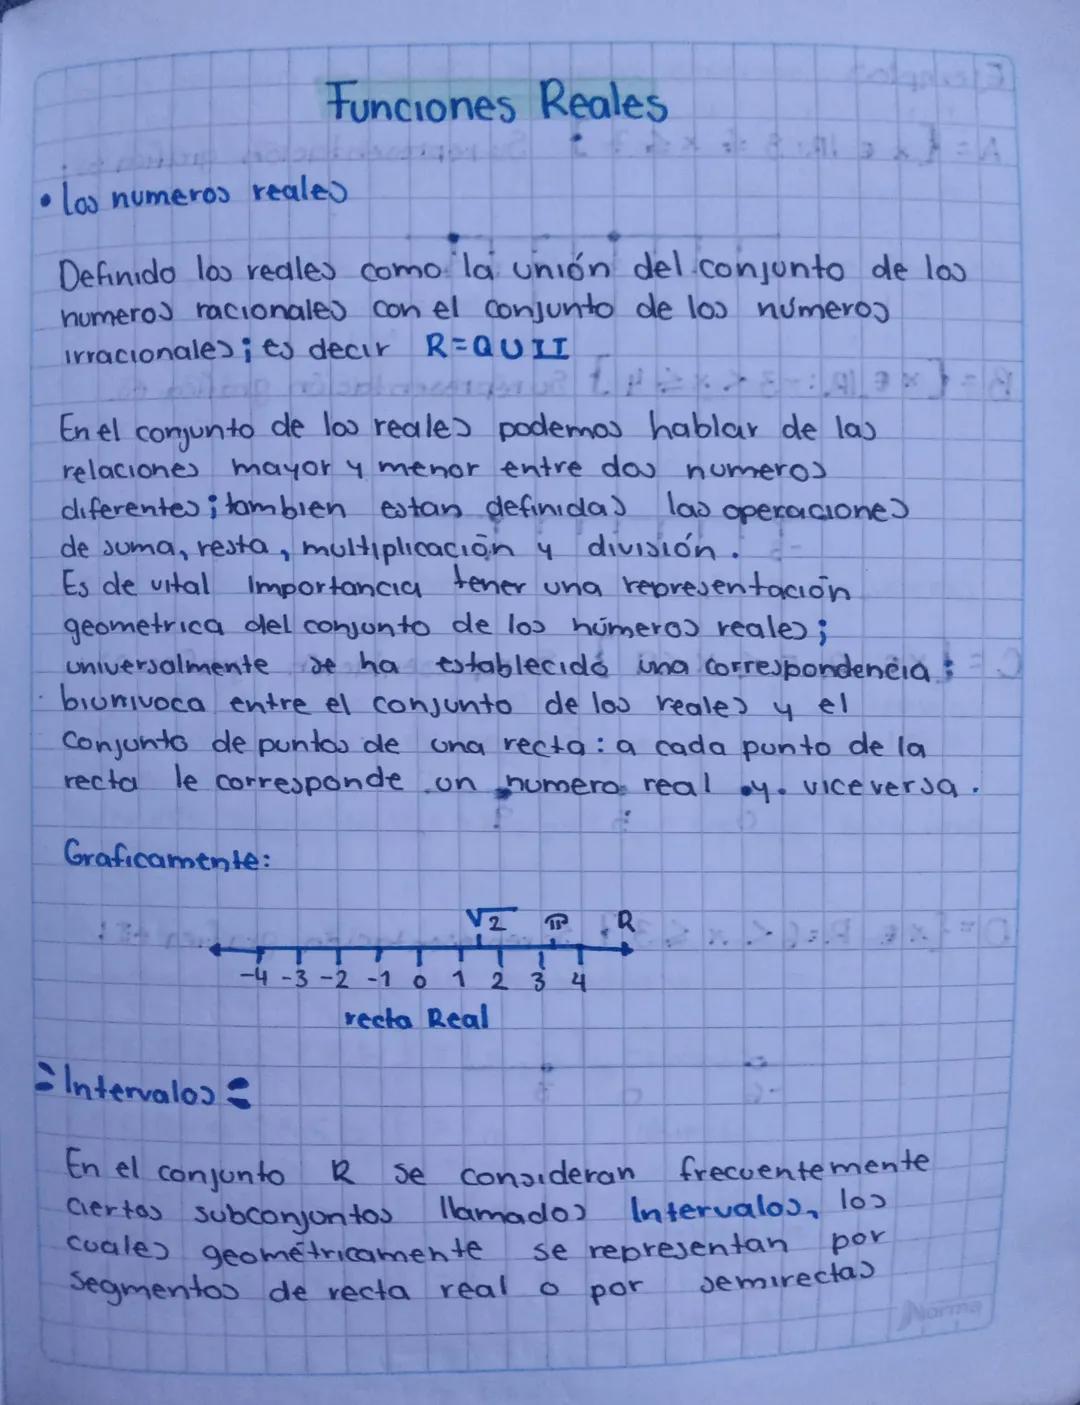 Funciones Reales
• los numeros reales
Definido los reales como la unión del conjunto de los
numeros racionales con el conjunto de los números
irracionales; es decir R=QUII
En el conjunto de los reales podemos hablar de las
relaciones mayor y menor entre dos numeros
diferentes; tambien estan definidas las operaciones
de suma, resta, multiplicación y división.
Es de vital Importancia tener una representación
geometrica del conjunto de los números reales;
universalmente se ha establecido una correspondencia
biunivoca entre el conjunto de los reales y el
Conjunto de puntos de una recta: a cada punto de la
recta le corresponde un numero real y viceversa.
Graficamente:
√2 π R
-4 -3 -2 -1 0 1 2 3 4
recta Real
Intervalos
En el conjunto R se consideran frecuentemente
ciertos subconjuntos llamados Intervalos, los
cuales geométricamente se representan por
segmentos de recta real o por semirectas
Norma